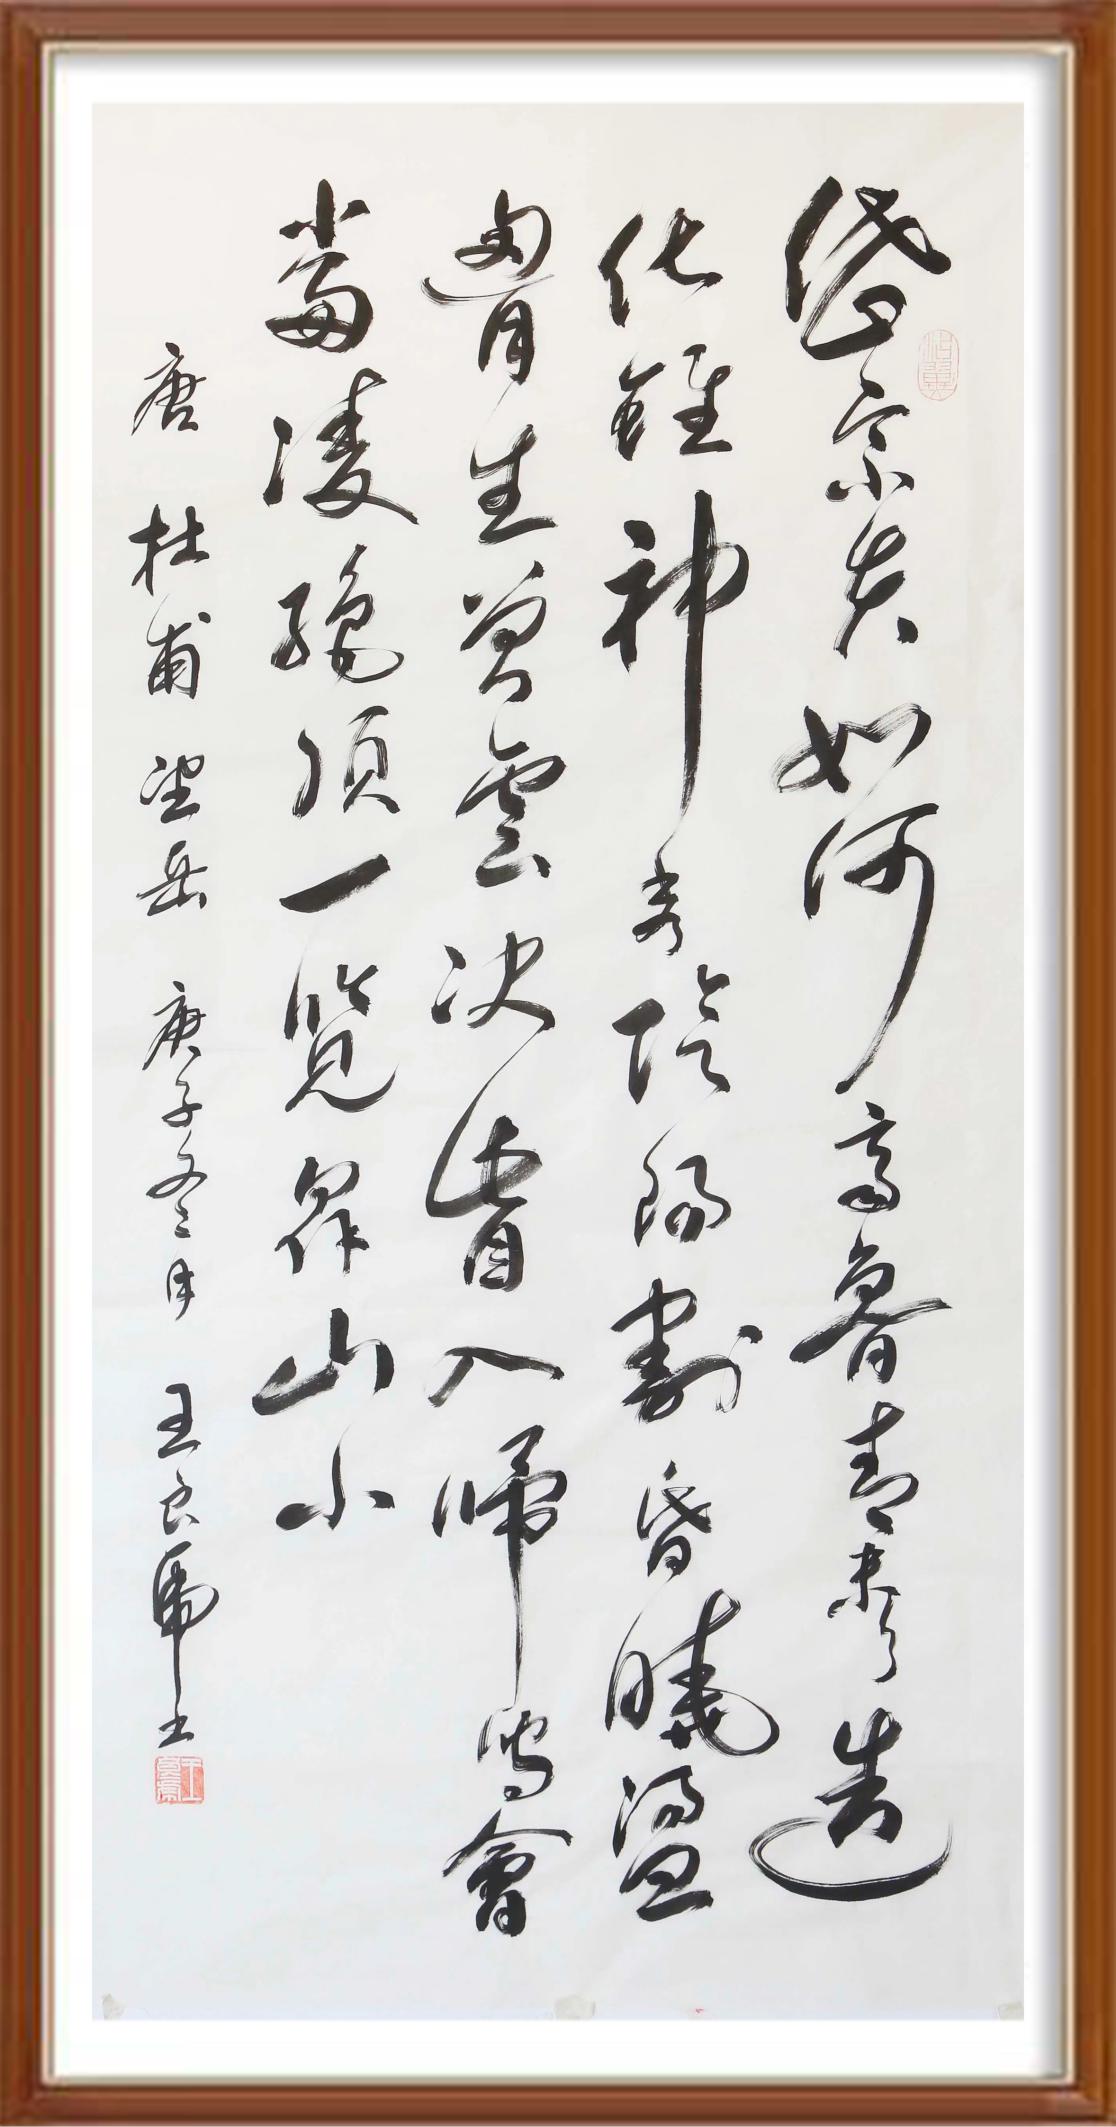 岱宗夫如何齊魯青未了造
化鍾神秀陰陽割昏曉盪
胷生曾雲决眥入帰鳥會
當凌絕頂一覽衆山小
唐 杜甫望岳 庚子冬月 王良虎